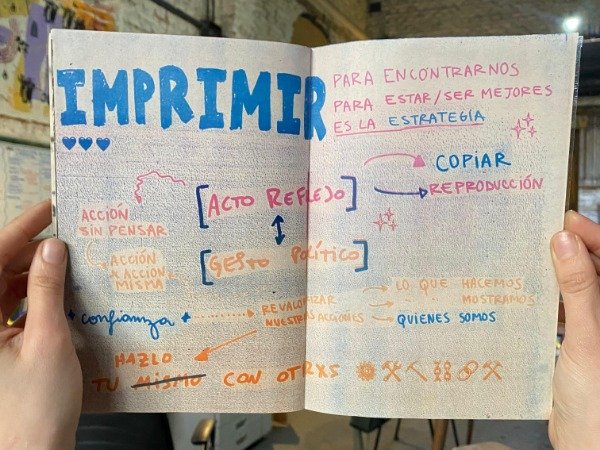 IMPRIMIR
PARA ENCONTRARNOS
PARA ESTAR/SER MEJORES
ES LA ESTRATEGIA
COPIAR
REPRODUCCIÓN
[ACTO REFLEJO]
ACCIÓN
SIN PENSAR
ACCIÓN
X ACCIÓN
MISMA
[GESTO POLÍTICO]
confianza
REVALORIZAR
NUESTRAS ACCIONES
LO QUE HACEMOS
" " MOSTRAMOS
QUIENES SOMOS
HAZLO
TU MISMO CON OTRXS